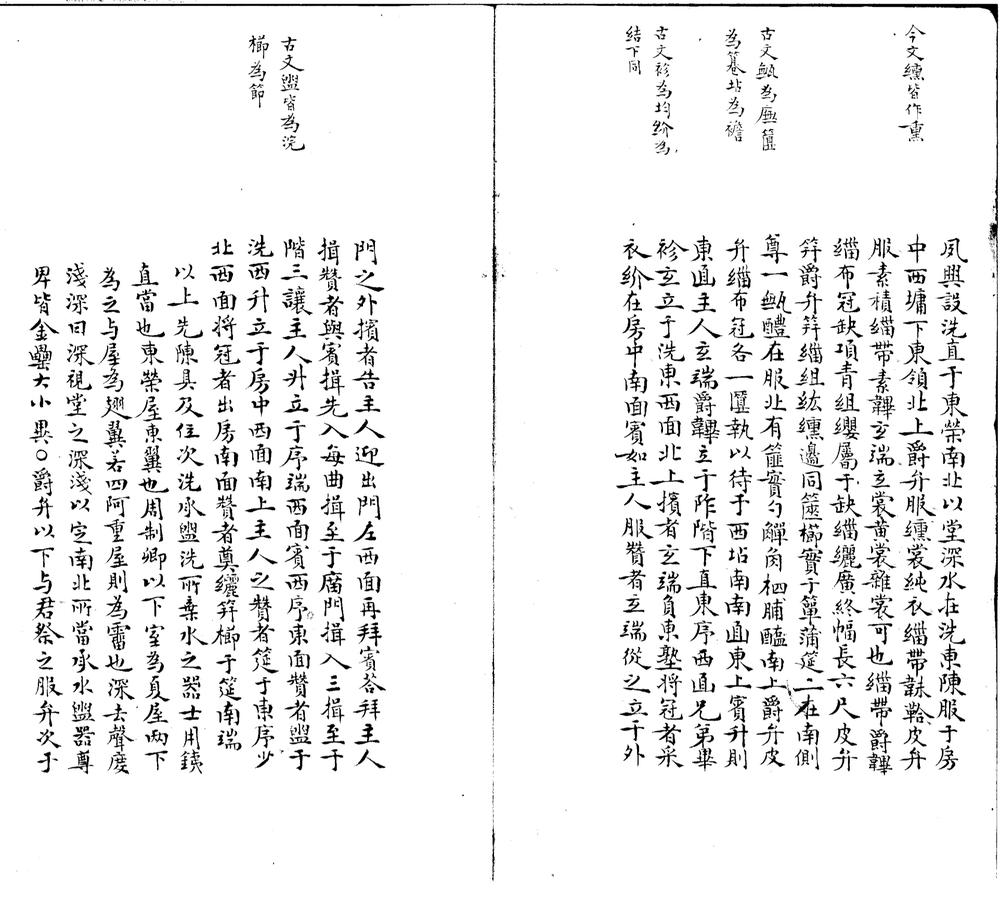 今文纁皆作熏
古文甒為廡匴
為篹坫為襜
古文袗為均紒為
結下同
夙興設洗直于東榮南北以堂深水在洗東陳服于房
中西墉下東領北上爵弁服纁裳純衣緇帶韎韐皮弁
服素積緇帶素韠玄端玄裳黃裳雜裳可也緇帶爵韠
緇布冠缺項青組纓屬于缺緇纚廣終幅長六尺皮弁
笄爵弁笄緇組紘纁邊同篋櫛實于簞蒲筵二在南側
尊一甒醴在服北有篚實勺觶角柶脯醢南上爵弁皮
弁緇布冠各一匴執以待于西坫南南面東上賓升則
東面主人玄端爵韠立于阼階下直東序西面兄弟畢
袗玄立于洗東西面北上擯者玄端負東塾將冠者采
衣紒在房中南面賓如主人服贊者玄端從之立于外
古文盥皆為浣
櫛為節
門之外擯者告主人迎出門左西面再拜賓答拜主人
揖贊者與賓揖先入每曲揖至于廟門揖入三揖至于
階三讓主人升立于序端西面賓西序東面贊者盥于
洗西升立于房中西面南上主人之贊者筵于東序少
北西面將冠者出房南面贊者奠纚笄櫛于筵南端
以上先陳具及位次洗承盥洗所棄水之器士用鐵
直當也東榮屋東翼也周制卿以下室為夏屋兩下
為之与屋為翅翼若四阿重屋則為霤也深去聲度
淺深曰深視堂之深淺以定南北所當承水盥器尊
卑皆金罍大小異○爵弁以下与君祭之服弁次于